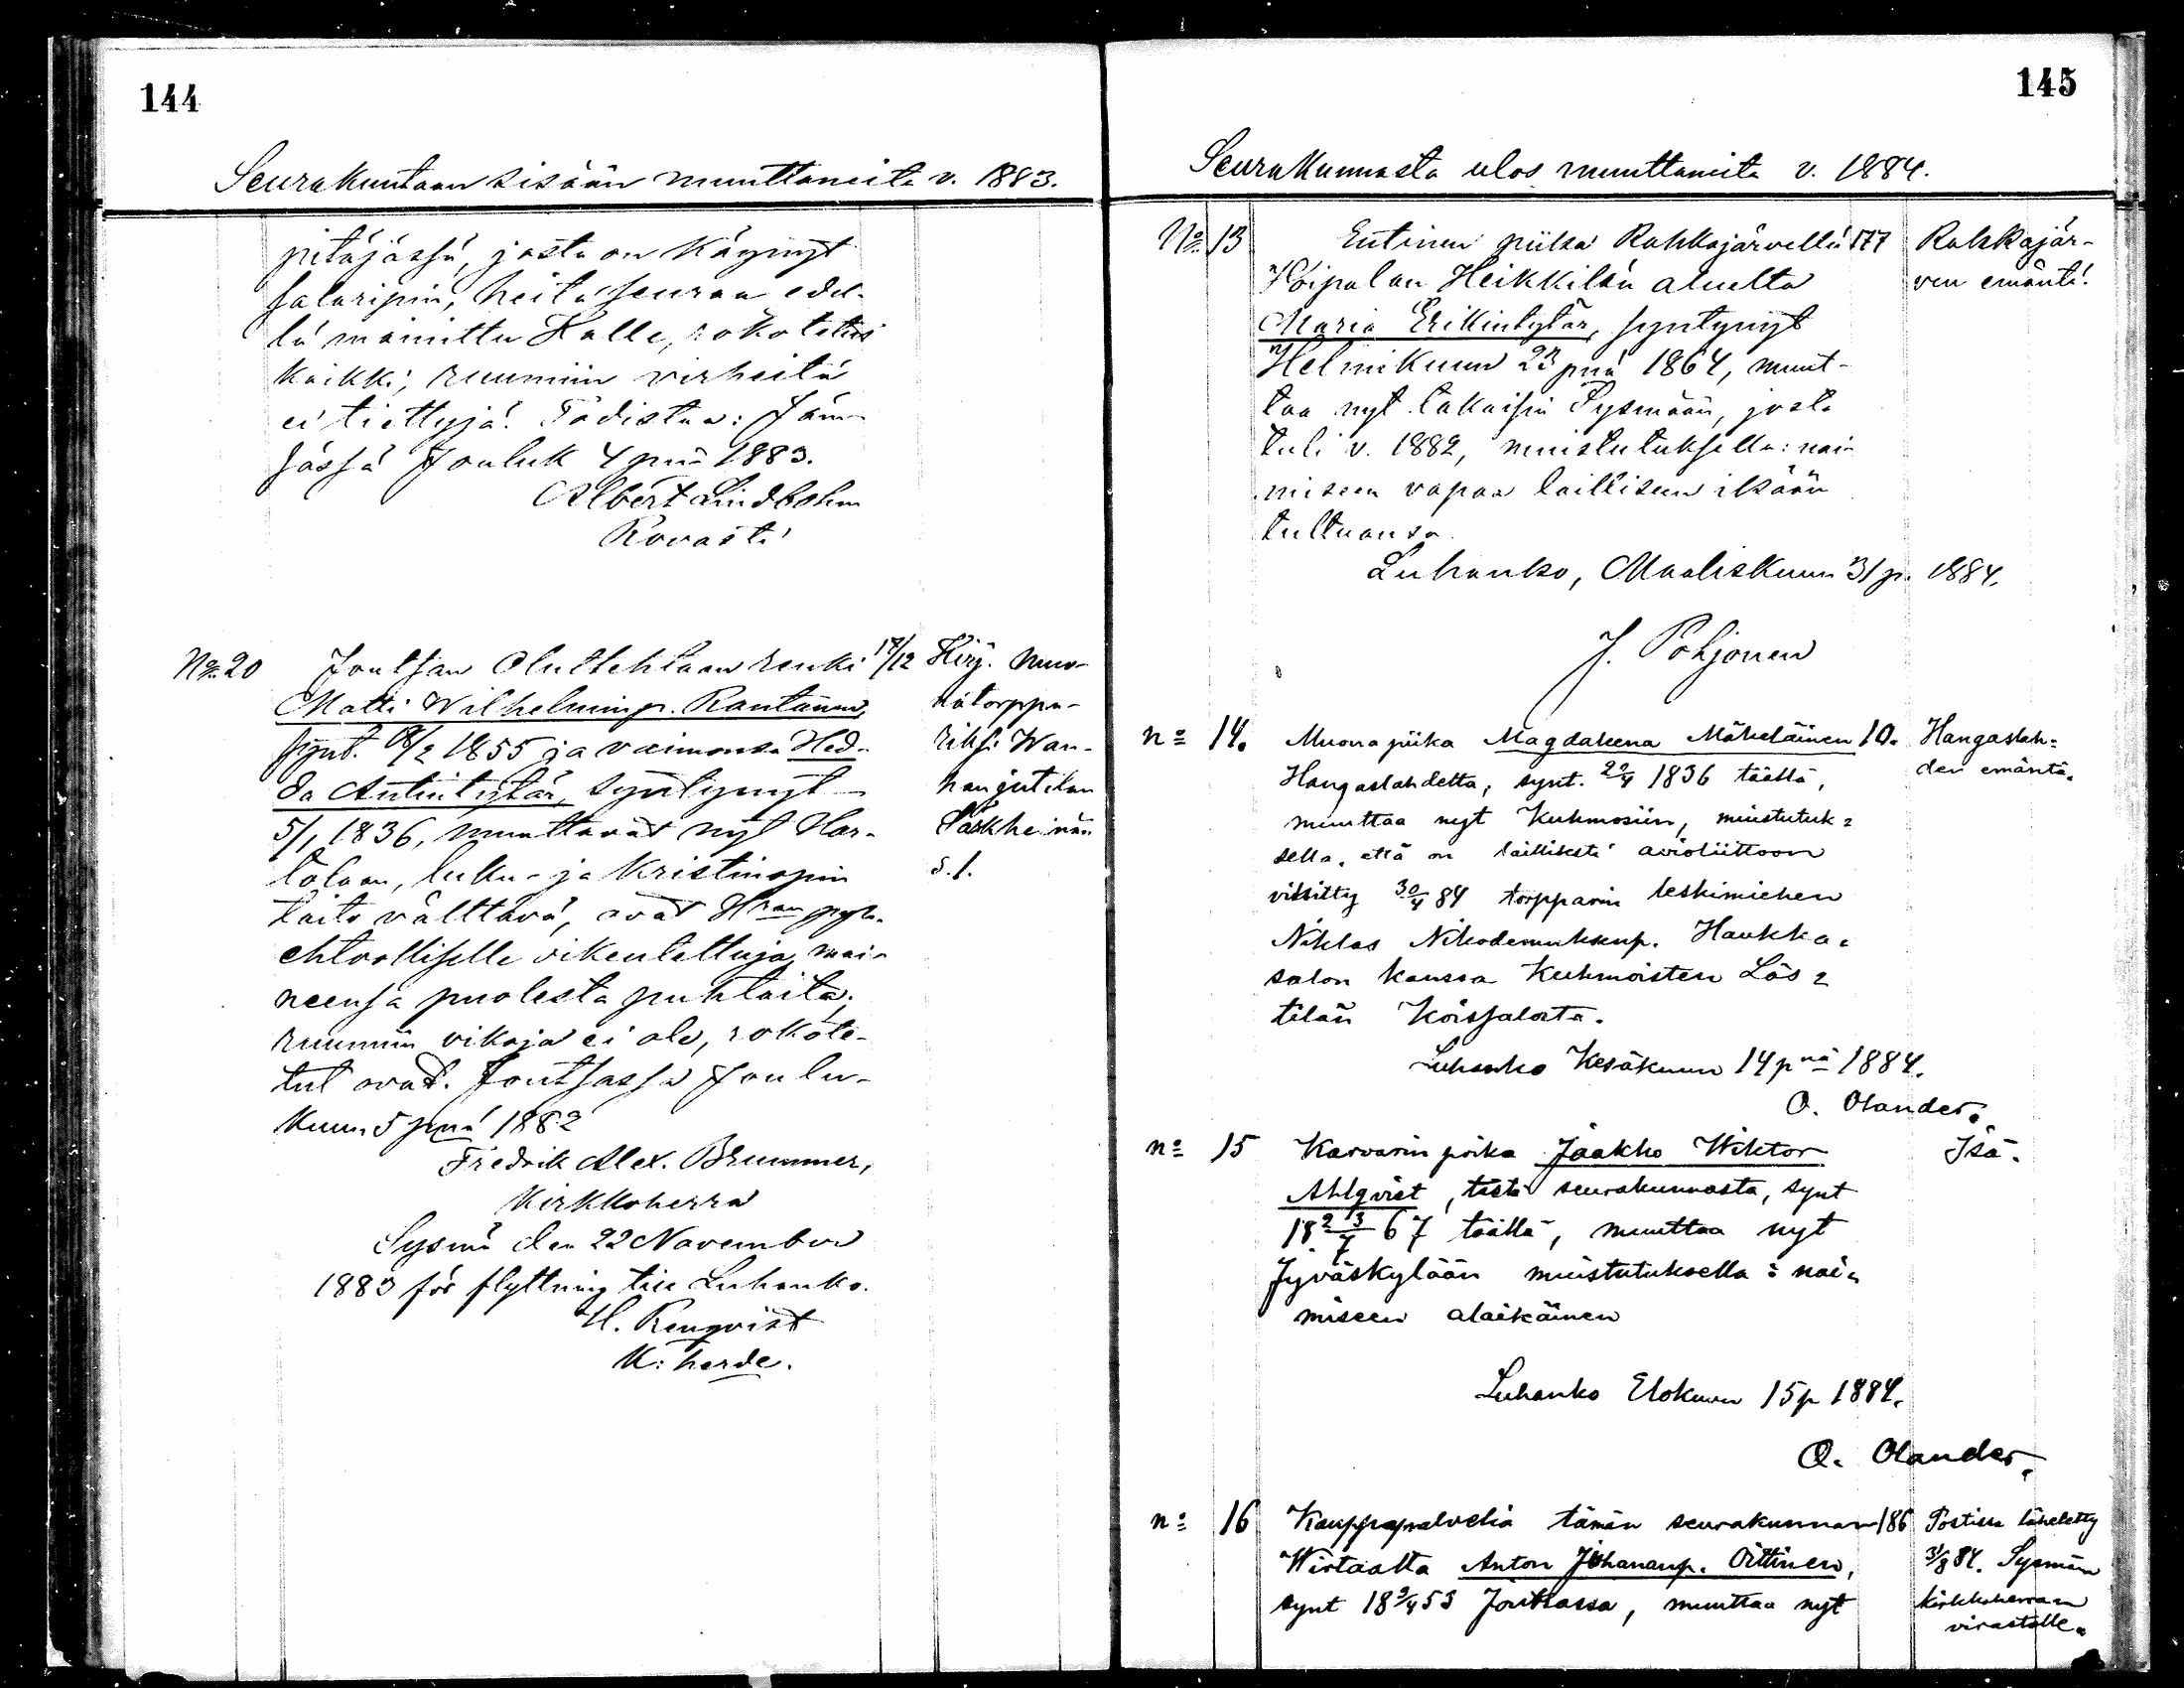 144
Seurakuntaan sisään muuttaneita v. 1883.
pitäjässä, josta on käynyt
salaripin, heitä seuraa edel-
lä mainittu Kalle, rokotetus
kaikki; ruumiin virheitä
ei tiettyjä. Todistaa: Jäm-
sässä Jouluk 4 pnä 1883.
Albert Lindbohm
Rovasti
No 20 Joutsan Oluttehtaan renki 17/12 Kirj. muo-
Matti Wilhelminp. Rantanen, nätorppa-
synt. /2 1855 ja vaimonsa Hed- riksi Wan-
da Antintytär, syntynyt hanjutilan
5/1 1836, muuttavat nyt Har-
tolaan, luku- ja kristinopin s. 1.
taito välttävä, ovat Hran pyh.
ehtoolliselle oikeutettuja, mai-
neensa puolesta puhtaita;
ruumiin vikoja ei ole, rokote-
tut ovat. Joutsassa Joulu-
kuun 5 pnä 1882
Fredrik Alex. Brummer,
Kirkkoherra
Sysmä den 22 November
1883 för flyttning till Luhanko.
H. Renqvist
K: herde.
145
Seurakunnasta ulos muuttaneita v. 1884.
No 13 Entinen piika Rahkajärvellä 177 Rahkajär-
Koipalan Heikkilän aluelta ven emäntä.
Maria Erikintytär, syntynyt
Helmikuun 23 pnä 1864, muut-
taa nyt takaisin Sysmään, josta
tuli v. 1882, muistutuksella: nai-
miseen vapaa lailliseen ikään
tultuansa.
Luhanko, Maaliskuun 31 p. 1884.
J. Pohjonen
no 14. Muonapiika Magdaleena Mäkeläinen 10. Hangaslah-
Hangaslahdelta, synt. 22/4 1836 täällä, den emäntä.
muuttaa nyt Kuhmosiin, muistutuk-
sella, että on laillisesti avioliittoon
vihitty 30/4 84 torpparin leskimiehen
Niklas Nikodemuksenp. Haukka-
salon kanssa Kuhmoisten Läs-
tilän Koissalosta.
Luhanko Kesäkuun 14 pnä 1884.
O. Olander.
no 15 Karvarin poika Jaakko Wiktor Isä.
Ahlqvist, tästä seurakunnasta, synt
18 23/7 67 täällä, muuttaa nyt
Jyväskylään muistutuksella: nai-
miseen alaikäinen
Luhanko Elokuun 15 p 1884.
O. Olander.
no 16 Kauppapalvelia tämän seurakunnan 186 Postissa läheletty
Wirtaalta Anton Johananp. Oittinen, 31/8 84. Sysmän
synt 18 2/4 53 Joutsassa, muuttaa nyt kirkkoherran
virastolle.